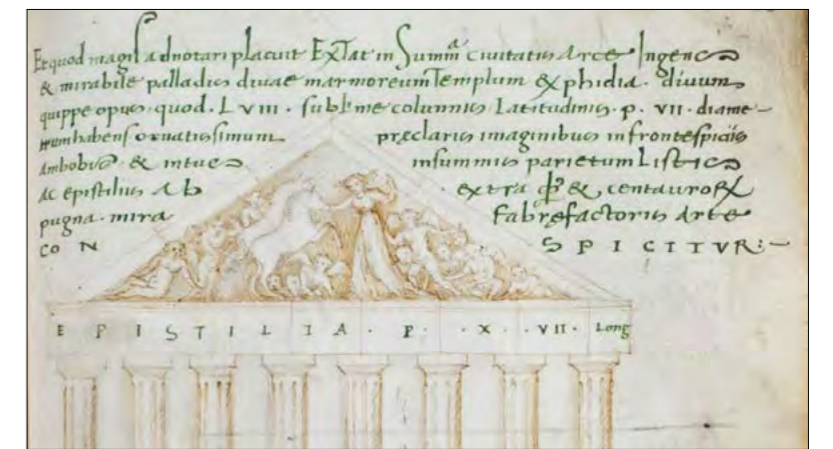 Et quod magis adnotari placuit Extat in Summa civitatis Arce Ingens
& mirabile palladis divae marmoreum Templum & phidia. divum
quippe opus. quod. LVIII. sublime columnis Latitudinis. p. VII. diame-
trum habens ornatissimum præclaris imaginibus in frontespiciis
Ambobus & intus in summis parietum Listis
Ac epistiliis Ab extra & centauroɼ
pugna. mira fabrefactoris Arte
CON SPICITVR:-
EPISTILIA. P. X. VII. Long